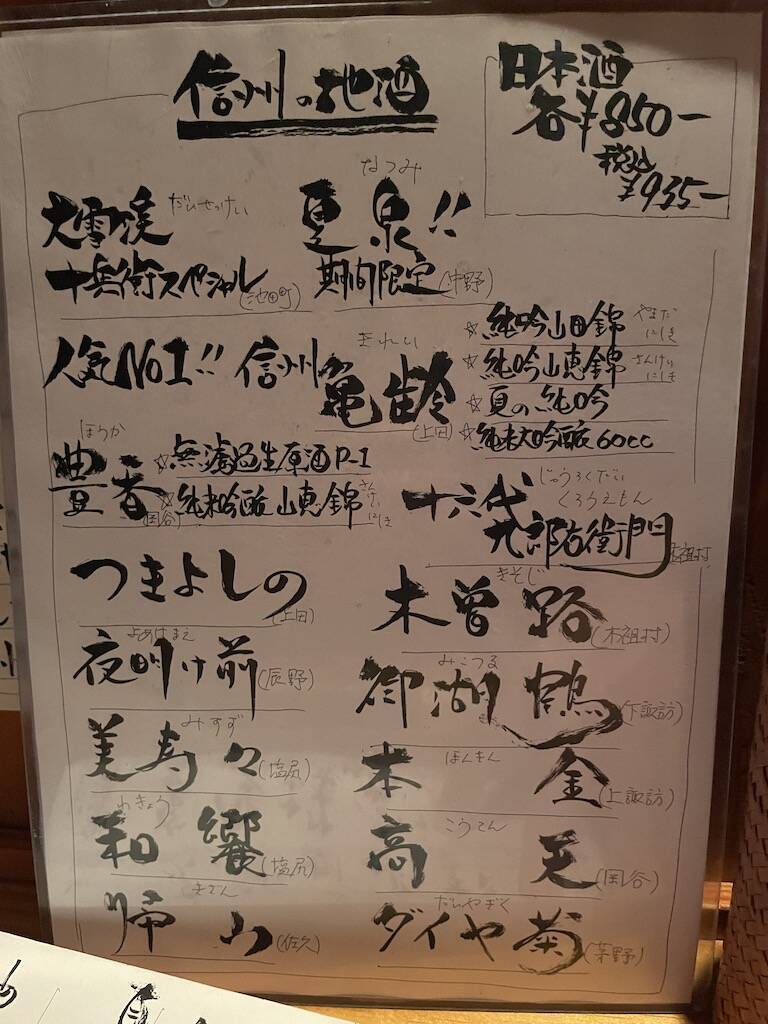 信州の地酒
日本酒
各¥850-
税込
¥935-
だいせっけい
大雪渓
十兵衛スペシャル(池田町)
なつみ
夏泉!!
期間限定(中野)
人気No1!! 信州
きれい
亀齢(上田)
☆純吟山田錦 やまだにしき
☆純吟山恵錦 さんけいにしき
☆夏の純吟
☆純米大吟醸60cc
ほうか
豊香(岡谷)
☆無濾過生原酒P-1
☆純米吟醸山恵錦 さんけいにしき
じゅうろくだい
くろうえもん
十六代
九郎右衛門(木祖村)
つきよしの(上田)
きそじ
木曽路(木祖村)
よあけまえ
夜明け前(辰野)
みこつる
御湖鶴(下諏訪)
みすず
美寿々(塩尻)
ほんきん
本金(上諏訪)
わきょう
和饗(塩尻)
こうてん
高天(岡谷)
きざん
帰山(佐久)
だいやぎく
ダイヤ菊(茅野)